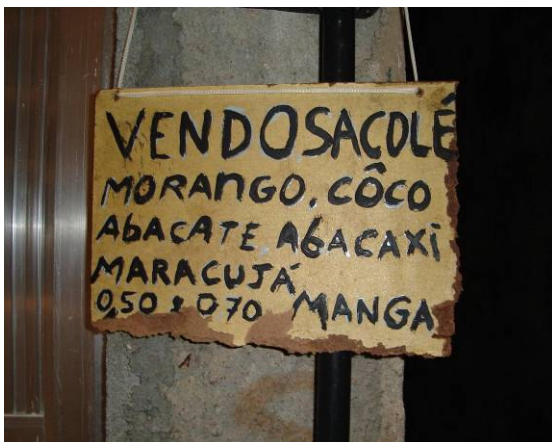 VENDOSACOLÉ
MORANGO. CÔCO
AbACATE. AbACAXi
MARACUJÁ
0,50 e 070 MANGA